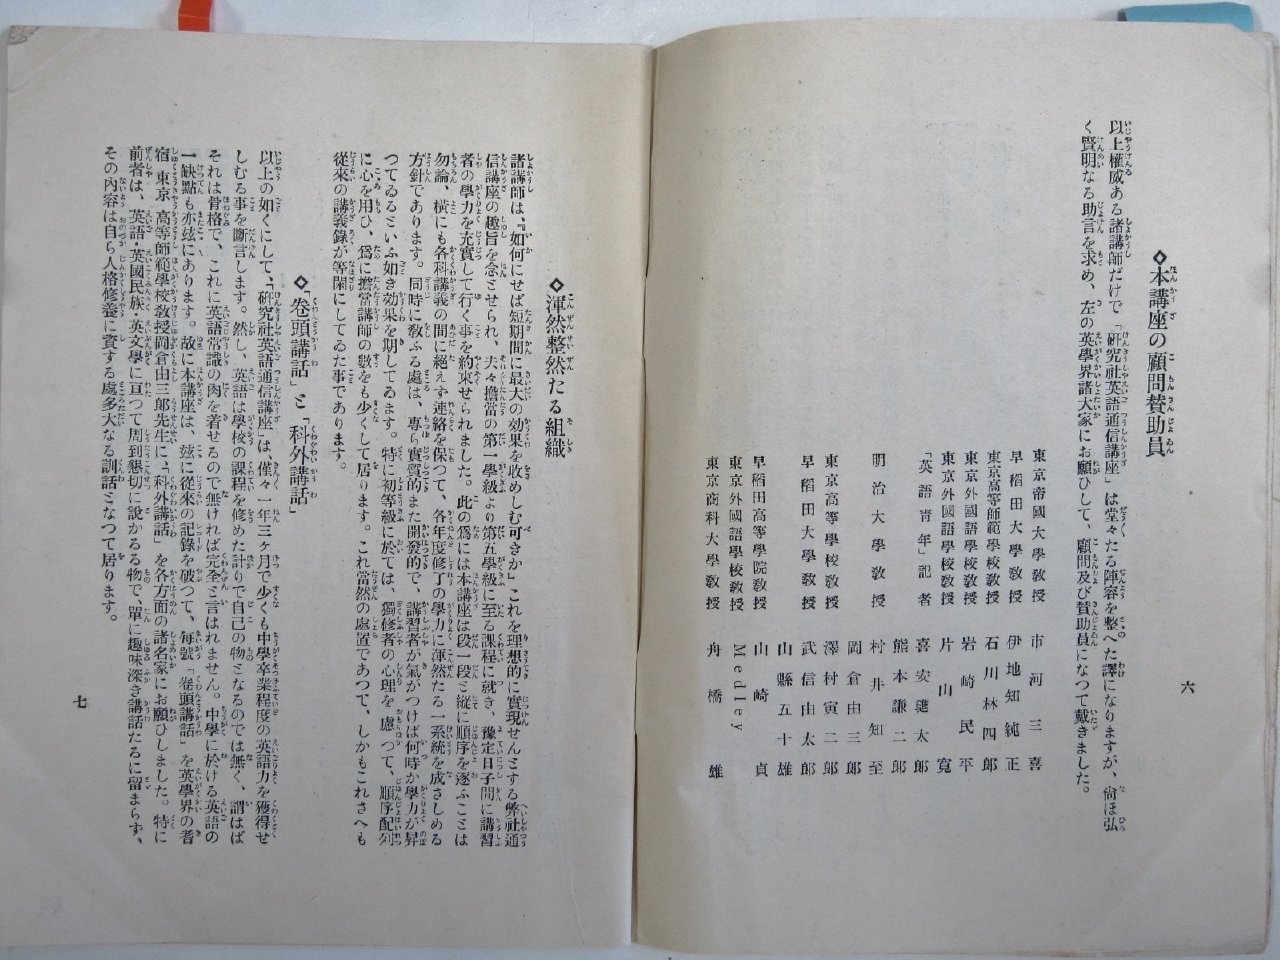 六
◇本講座の顧問賛助員
以上權威ある諸講師だけで「硏究社英語通信講座」は堂々たる陣容を整へた譯になりますが、尙ほ弘
く賢明なる助言を求め、左の英學界諸大家にお願ひして、顧問及び賛助員になつて戴きました。
東京帝國大學敎授 市河三喜
早稻田大學敎授 伊地知純正
東京高等師範學校敎授 石川林四郞
東京外國語學校敎授 岩崎民平
東京外國語學校敎授 片山寬
「英語靑年」記者 喜安璡太郞
熊本謙二郞
明治大學敎授 村井知至
岡倉由三郞
東京高等學校敎授 澤村寅二郞
早稻田大學敎授 武信由太郞
山縣五十雄
早稻田高等學院敎授 山崎貞
東京外國語學校敎授 Medley
東京商科大學敎授 舟橋雄
◇渾然整然たる組織
諸講師は、『如何にせば短期間に最大の効果を收めしむ可きか』これを理想的に實現せんとする弊社通
信講座の趣旨を念とせられ、夫々擔當の第一學級より第五學級に至る課程に就き、豫定日子間に講習
者の學力を充實して行く事を約束せられました。此の爲には本講座は段一段と縱に順序を逐ふことは
勿論、橫にも各科講義の間に絕えず連絡を保つて、各年度修了の學力に渾然たる一系統を成さしめる
方針であります。同時に敎ふる處は、專ら實質的また開發的で、講習者が氣がつけば何時か學力が昇
つてゐるといふ如き効果を期してゐます。特に初等級に於ては、獨修者の心理を慮つて、順序配列
に心を用ひ、爲に擔當講師の數をも少くして居ります。これ當然の處置であつて、しかもこれさへも
從來の講義錄が等閑にしてゐた事であります。
◇「卷頭講話」と「科外講話」
以上の如くにして、「硏究社英語通信講座」は、僅々一年三ケ月で少くも中學卒業程度の英語力を獲得せ
しむる事を斷言します。然し、英語は學校の課程を修めた計りで自己の物となるのでは無く、謂はば
それは骨格で、これに英語常識の肉を着せるので無ければ完全と言はれません。中學に於ける英語の
一缺點も亦玆にあります。故に本講座は、玆に從來の記錄を破つて、每號「卷頭講話」を英學界の耆
宿、東京高等師範學校敎授岡倉由三郞先生に、「科外講話」を各方面の諸名家にお願ひしました。特に
前者は、英語・英國民族・英文學に亘つて周到懇切に說かるる物で、單に趣味深き講話たるに留まらず、
その內容は自ら人格修養に資する處多大なる訓話となつて居ります。
七